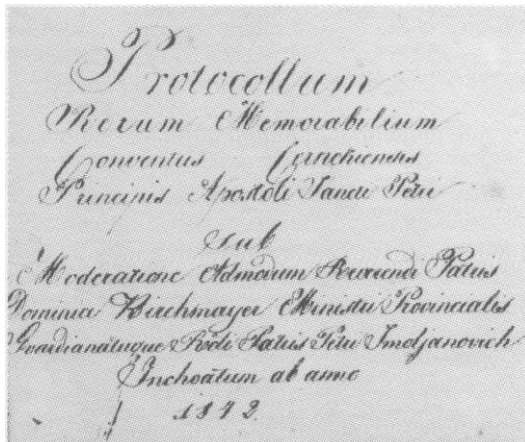 Protocollum
Rerum Memorabilium
Conventus Cernekiensis
Principis Apostoli Sancti Petri
sub
Moderatione Admodum Reverendi Patris
Dominici Kirchmayer Ministri Provincialis
Guardianatuque Rvdi Patris Petri
Inchoatum ab anno
1842